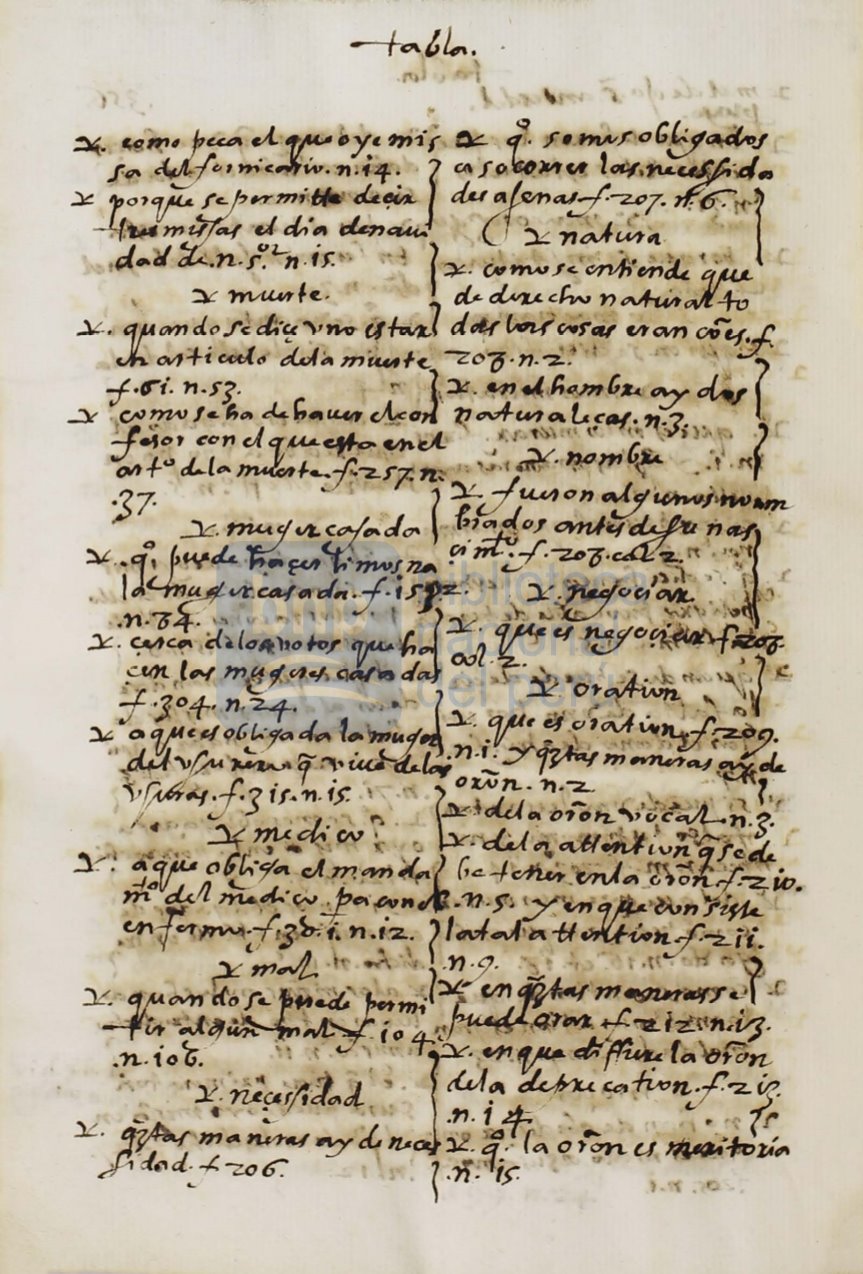 tabla.
℣. como peca el que oye mis
sa del fornicario. n. 14.
℣ porque se permitte decir
tres missas el dia de navi
dad de. n. s.or n. 15.
℣ muerte.
℣. quando se diçe vno estar
en articulo dela muerte
f. 61. n. 53.
℣ como se ha de haver el con
fesor con el que esta en el
arto de la muerte. f. 257. n.
.37.
℣. muger casada
℣. qo. puede haçer limosna
la muger casada. f. 192.
.n. 34.
℣. çerca delos votos que ha
çen las mugeres casadas
f. 304. n. 24.
℣ a que es obligada la muger
del vsurero q̃ vive delas
vsuras. f. 315. n. 15.
℣ medico
℣. a que obliga el manda
mto del medico pa con el
enfermo. f. 381. n. 12.
℣ mal
℣. quando se puede permi
tir algun mal f. 104.
.n. 106.
℣. neçessidad
℣. q̃tas maneras ay de neces
sidad. f 206.
℣ qo. somos obligados
a socorrer las necessida
des ajenas f. 207. n. 6.
℣ natura
℣. como se entiende que
de derecho natural to
das las cosas eran cões. f.
208. n. 2.
℣. en el hombre ay dos
naturaleças. n. 3.
℣. nombre
℣. fueron algunos nom
brados antes de su nas
çimto. f. 208. col 2.
℣. negociar
℣. que es negoçiar f 208.
col. 2.
℣ oration
℣. que es oration f. 209.
.n. 1. y q̃tas maneras ay de
orõn. n. 2
℣. dela orõn vocal. n. 3.
℣. dela attention q̃ se de
be tener en la orõn. f. 210.
.n. 5. y en que consiste
la tal attention. f. 211.
.n. 9.
℣ en q̃tas maneras se
puede orar f. 212. n. 13.
℣. en que differe la orõn
dela deprecation. f. 213.
.n. 14.
℣. qo. la orõn es meritoria
.n. 15.